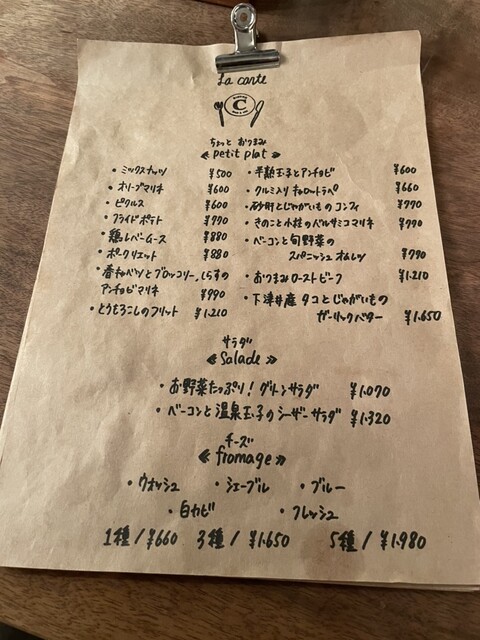 La carte
C
ちょっと おつまみ
≪ petit plat ≫
・ミックスナッツ ¥500
・オリーブマリネ ¥600
・ピクルス ¥600
・フライドポテト ¥770
・鶏レバームース ¥880
・ポークリエット ¥880
・春キャベツとブロッコリー、しらすの
アンチョビマリネ ¥990
・とうもろこしのフリット ¥1.210
・半熟玉子とアンチョビ ¥600
・クルミ入り キャロットラペ ¥660
・砂肝とじゃがいものコンフィ ¥770
・きのこと小柱のバルサミコマリネ ¥790
・ベーコンと旬野菜の
スパニッシュオムレツ ¥790
・おつまみローストビーフ ¥1.210
・下津井産 タコとじゃがいもの
ガーリックバター ¥1.650
サラダ
≪ Salade ≫
・お野菜たっぷり！グリーンサラダ ¥1.070
・ベーコンと温泉玉子のシーザーサラダ ¥1.320
チーズ
≪ fromage ≫
・ウォッシュ ・シェーブル ・ブルー
・白カビ ・フレッシュ
1種 / ¥660 3種 / ¥1.650 5種 / ¥1.980